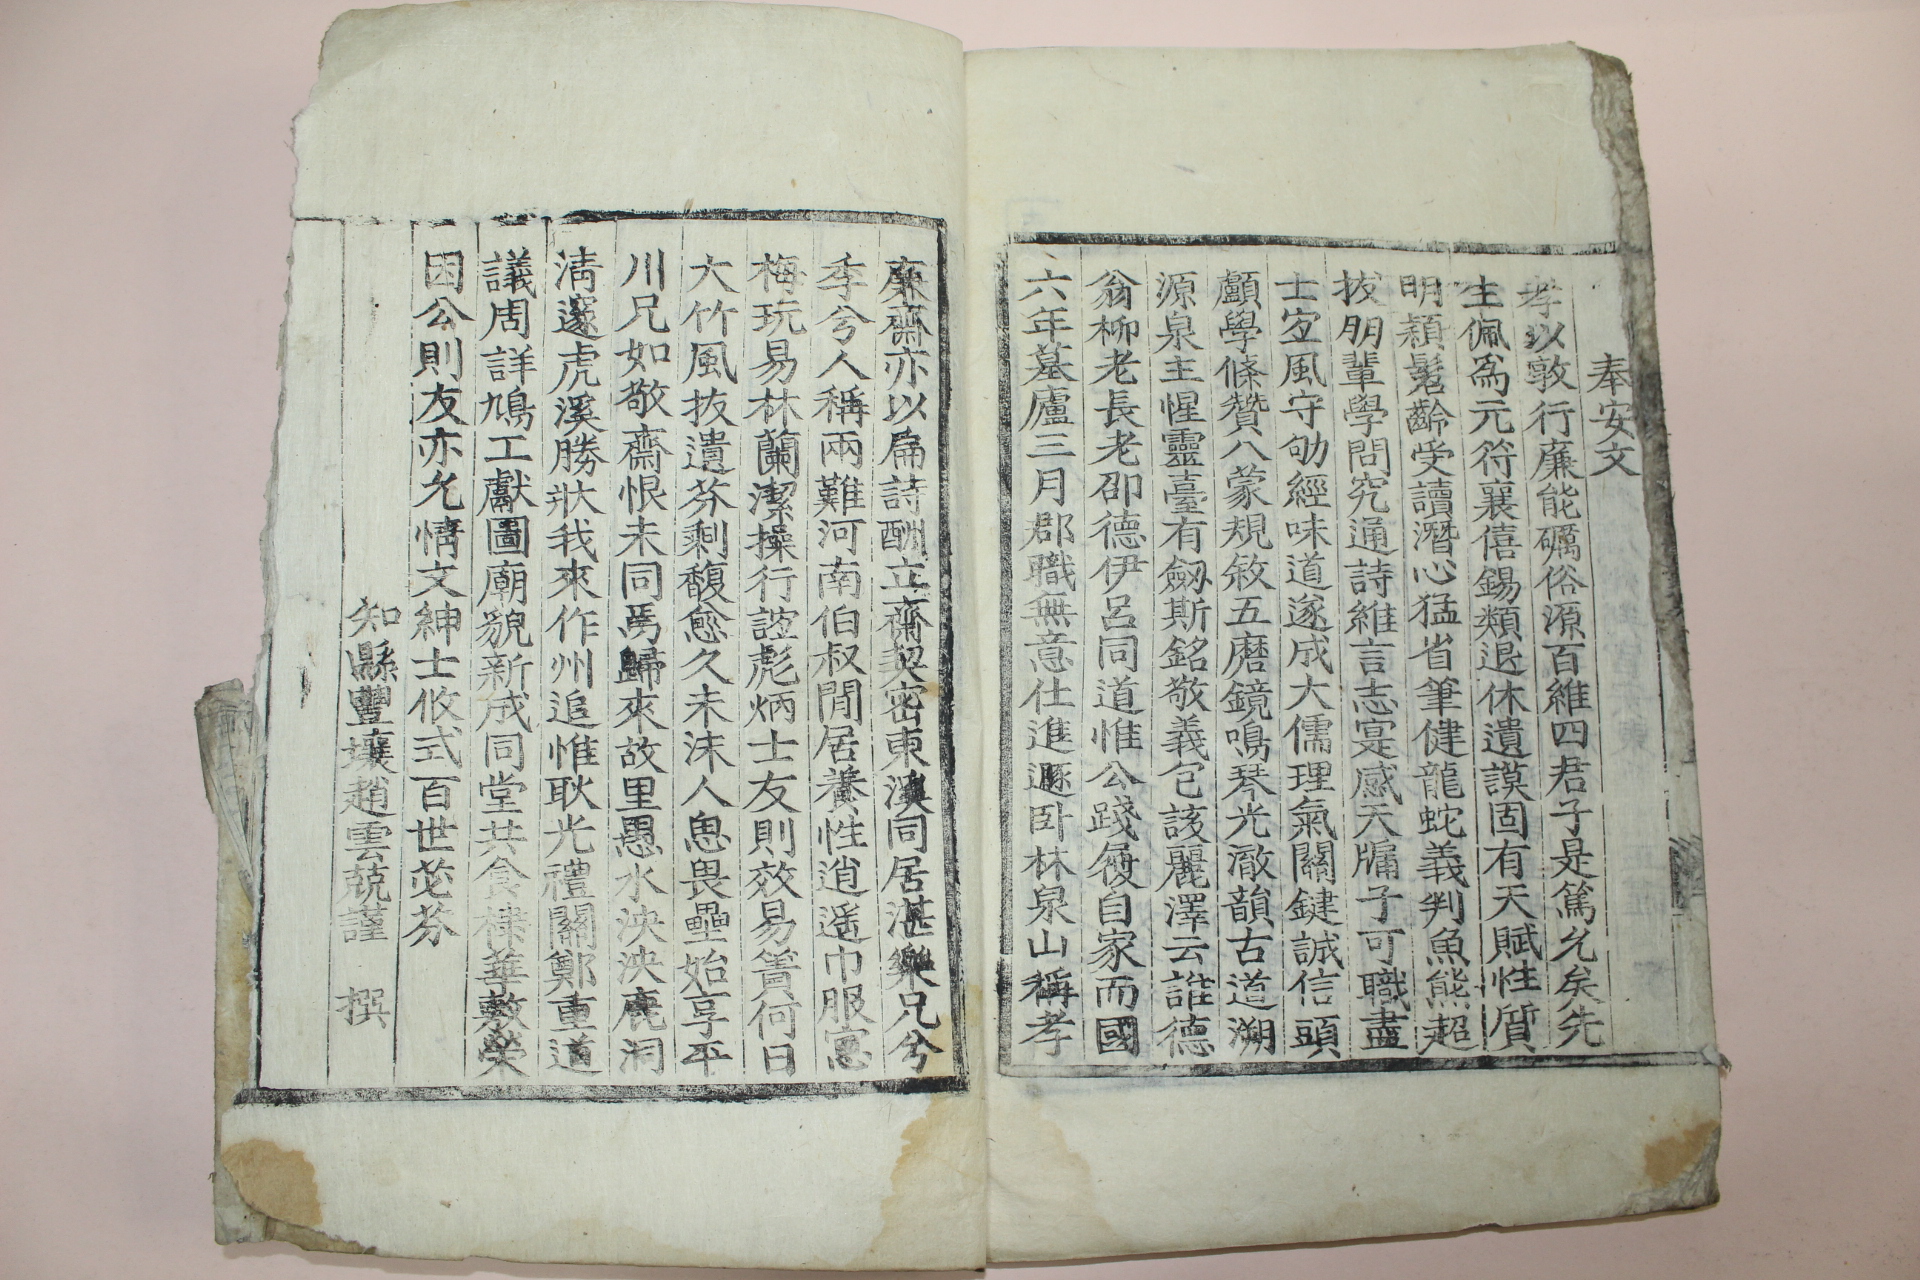 奉安文
孝以敦行廉能礪俗源百維四君子是篤允矣先
生佩爲元符襄僖錫類退休遺謨固有天賦性質
明穎髫齡受讀潛心猛省筆健龍蛇義判魚熊超
拔朋輩學問究通詩維言志寔感天牖子可職盡
士宜風守劬經味道遂成大儒理氣關鍵誠信頭
顱學條贊八蒙規敘五磨鏡鳴琴光澈韻古道溯
源泉主惺靈臺有劒斯銘敬義包該麗澤云誰德
翁柳老長老卲德伊呂同道惟公踐履自家而國
六年墓廬三月郡職無意仕進遯卧林泉山稱孝
廉齋亦以扁詩酬立齋契密東溪同居湛樂兄兮
季兮人稱兩難河南伯叔閒居養性逍遥巾服寓
梅玩易林蘭潔操行誼彪炳士友則效易簀何日
大竹風拔遺芬剩馥愈久未沫人思畏壘始享平
川兄如敬齋恨未同焉歸來故里愚水泱泱鹿洞
清邃虎溪勝狀我來作州追惟耿光禮關鄭重道
議周詳鳩工獻圖廟貌新成同堂共食棣華敷榮
因公則友亦允情文紳士攸式百世苾芬
知縣豐壤趙雲兢謹 撰